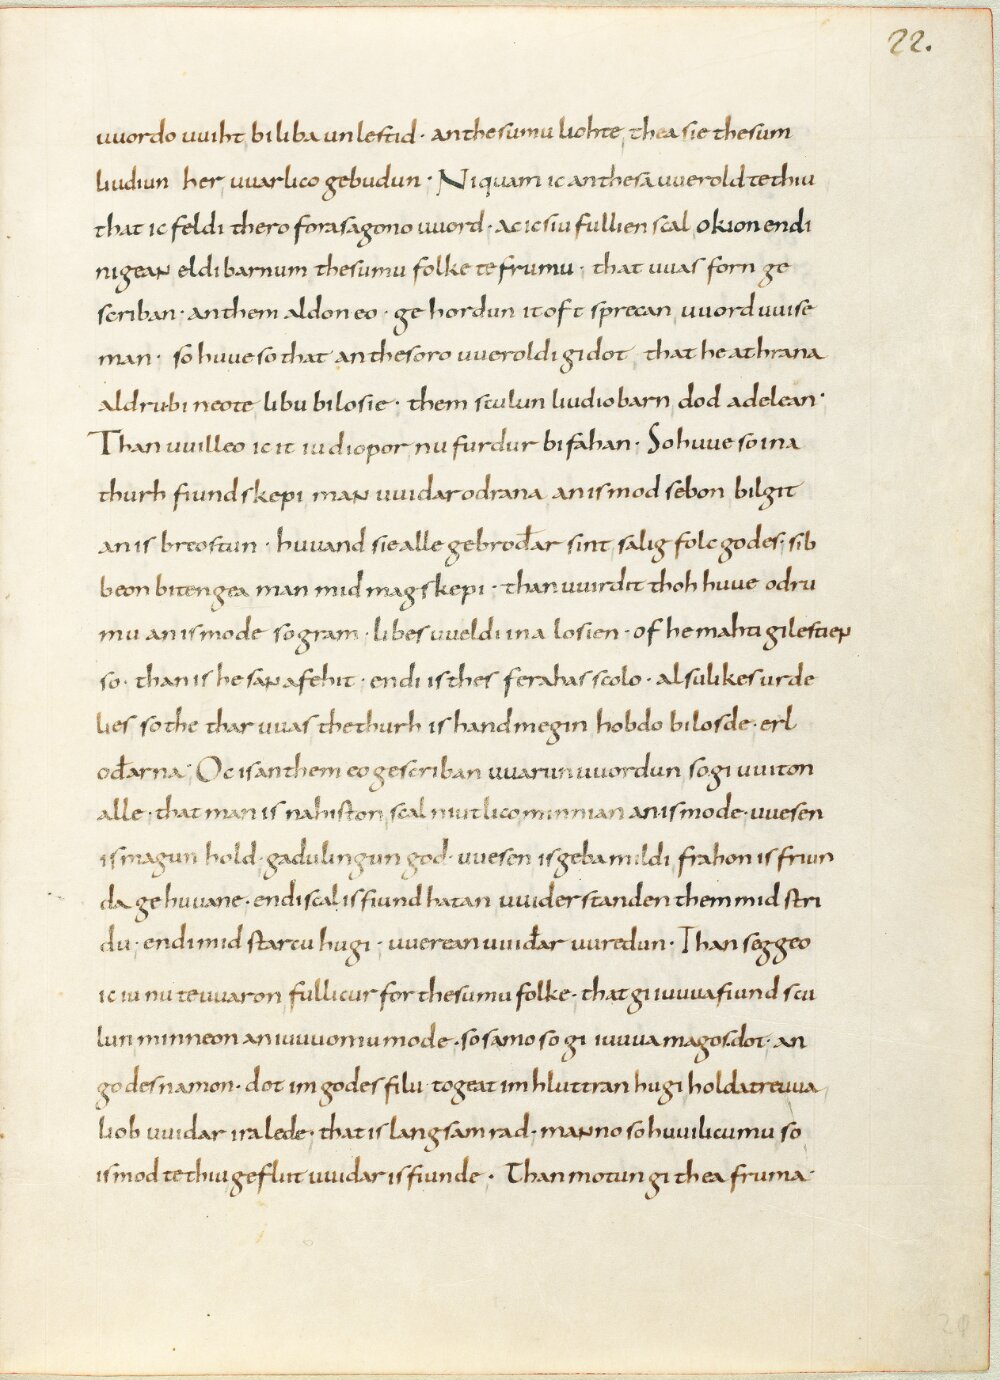 22.
uuordo uuiht biliba unlestid · an thesumu liohte, thea sie thesum
liudiun her uuarlico gebudun · Ni quam ic an thesa uuerold te thiu
that ic feldi thero forasagono uuord · ac ic siu fullien scal okion endi
nigean eldibarnum thesumu folke te frumu · that uuas forn ge
scriban · an them aldon eo · ge hordun it oft sprecan uuorduuise
man · so huue so that an thesoro uueroldi gidot that he athrana
aldru bineote libu bilosie · them sculun liudio barn dod adelean ·
Than uuilleo ic it iu diopor nu furdur bifahan · So huue so ina
thurh fiundskepi man uuidar odrana an is mod sebon bilgit
an is breostun · huuand sie alle gebrođar sint salig folc godes · sib
beon bitengea man mid magskepi · than uuirdit thoh huue odru
mu an is mode so gram · libes uueldi ina losien · of he mahti gilestien
so · than is he san afehit · endi is thes ferahas scolo · al sulikes urde
lies so the thar uuas the thurh is handmegin hobdo bilosde · erl
ođarna · Oc is an them eo gescriban uuarun uuordun so gi uuiton
alle · that man is nahiston scal niutlico minnian an is mode · uuesen
is magun hold · gadulingun god · uuesen is geba mildi frahon is friun
da gehuuane · endi scal is fiund hatan uuiderstanden them mid stri
du · endi mid starcu hugi · uuerean uuiđar uuredun · Than seggeo
ic iu nu te uuaron fullicur for thesumu folke · that gi iuuua fiund scu
lun minneon an iuuuomu mode · so samo so gi iuuua magos dot · an
godes namon · dot im godes filu togeat im hluttran hugi holda treuua
liob uuidar ira lede · that is langsam rad · manno so huuilicumu so
is mod te thiu gefliit uuidar is fiunde · Than motun gi thea fruma